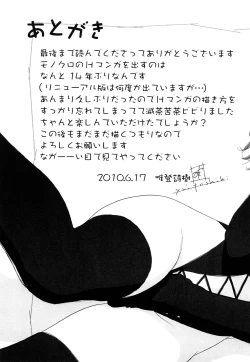 あとがき
最後まで読んでくださってありがとうございます
モノクロのHマンガを出すのは
なんと14年ぶりなんです
(リニューアル版は何度か出ていますが…)
あんまり久しぶりだったのでHマンガの描き方を
すっかり忘れてしまってて滅茶苦茶ビビりました
ちゃんと楽しんでいただけたでしょうか?
この後もまだまだ描くつもりなので
よろしくお願いします
ながーーい目で見てやってください
2010.6.17 唯登詩樹